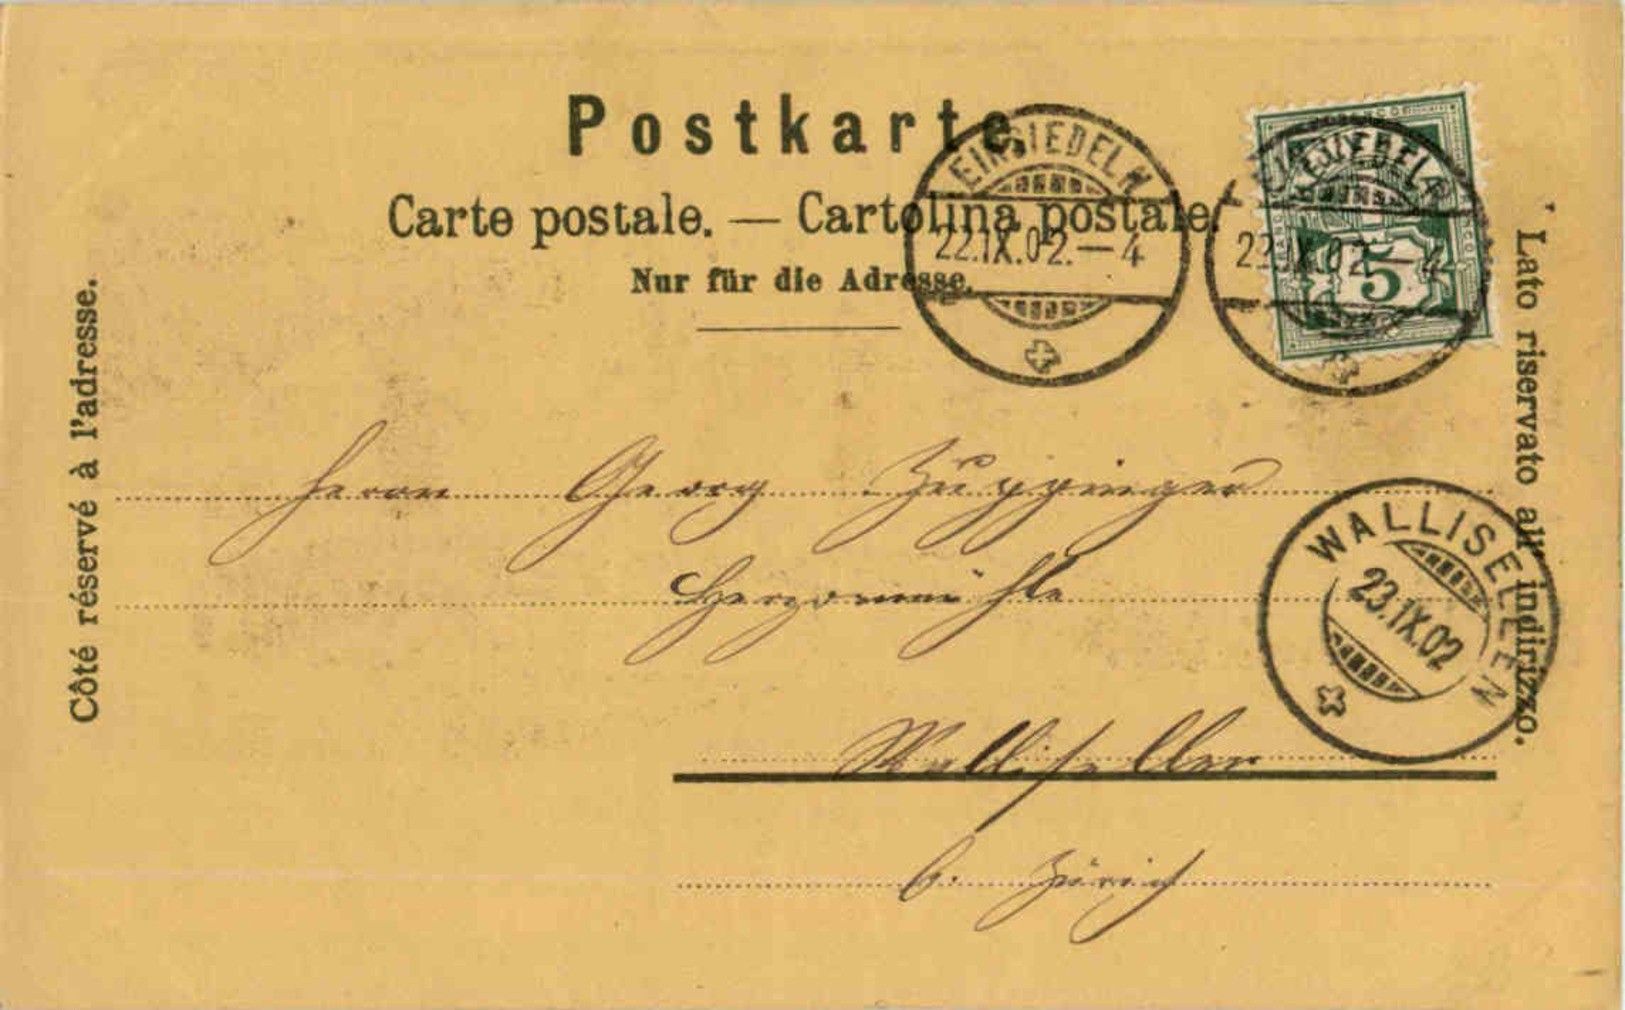 Postkarte.
Carte postale. — Cartolina postale.
Nur für die Adresse.
Côté réservé à l'adresse.
Lato riservato all' indirizzo.
EINSIEDELN
22.IX.02.—4
EINSIEDELN
22.IX.02.—4
FRANCO
5
WALLISELLEN
23.IX.02
Herrn Georg Zuppinger
Herzogmühle
Wallisellen
b. Zürich